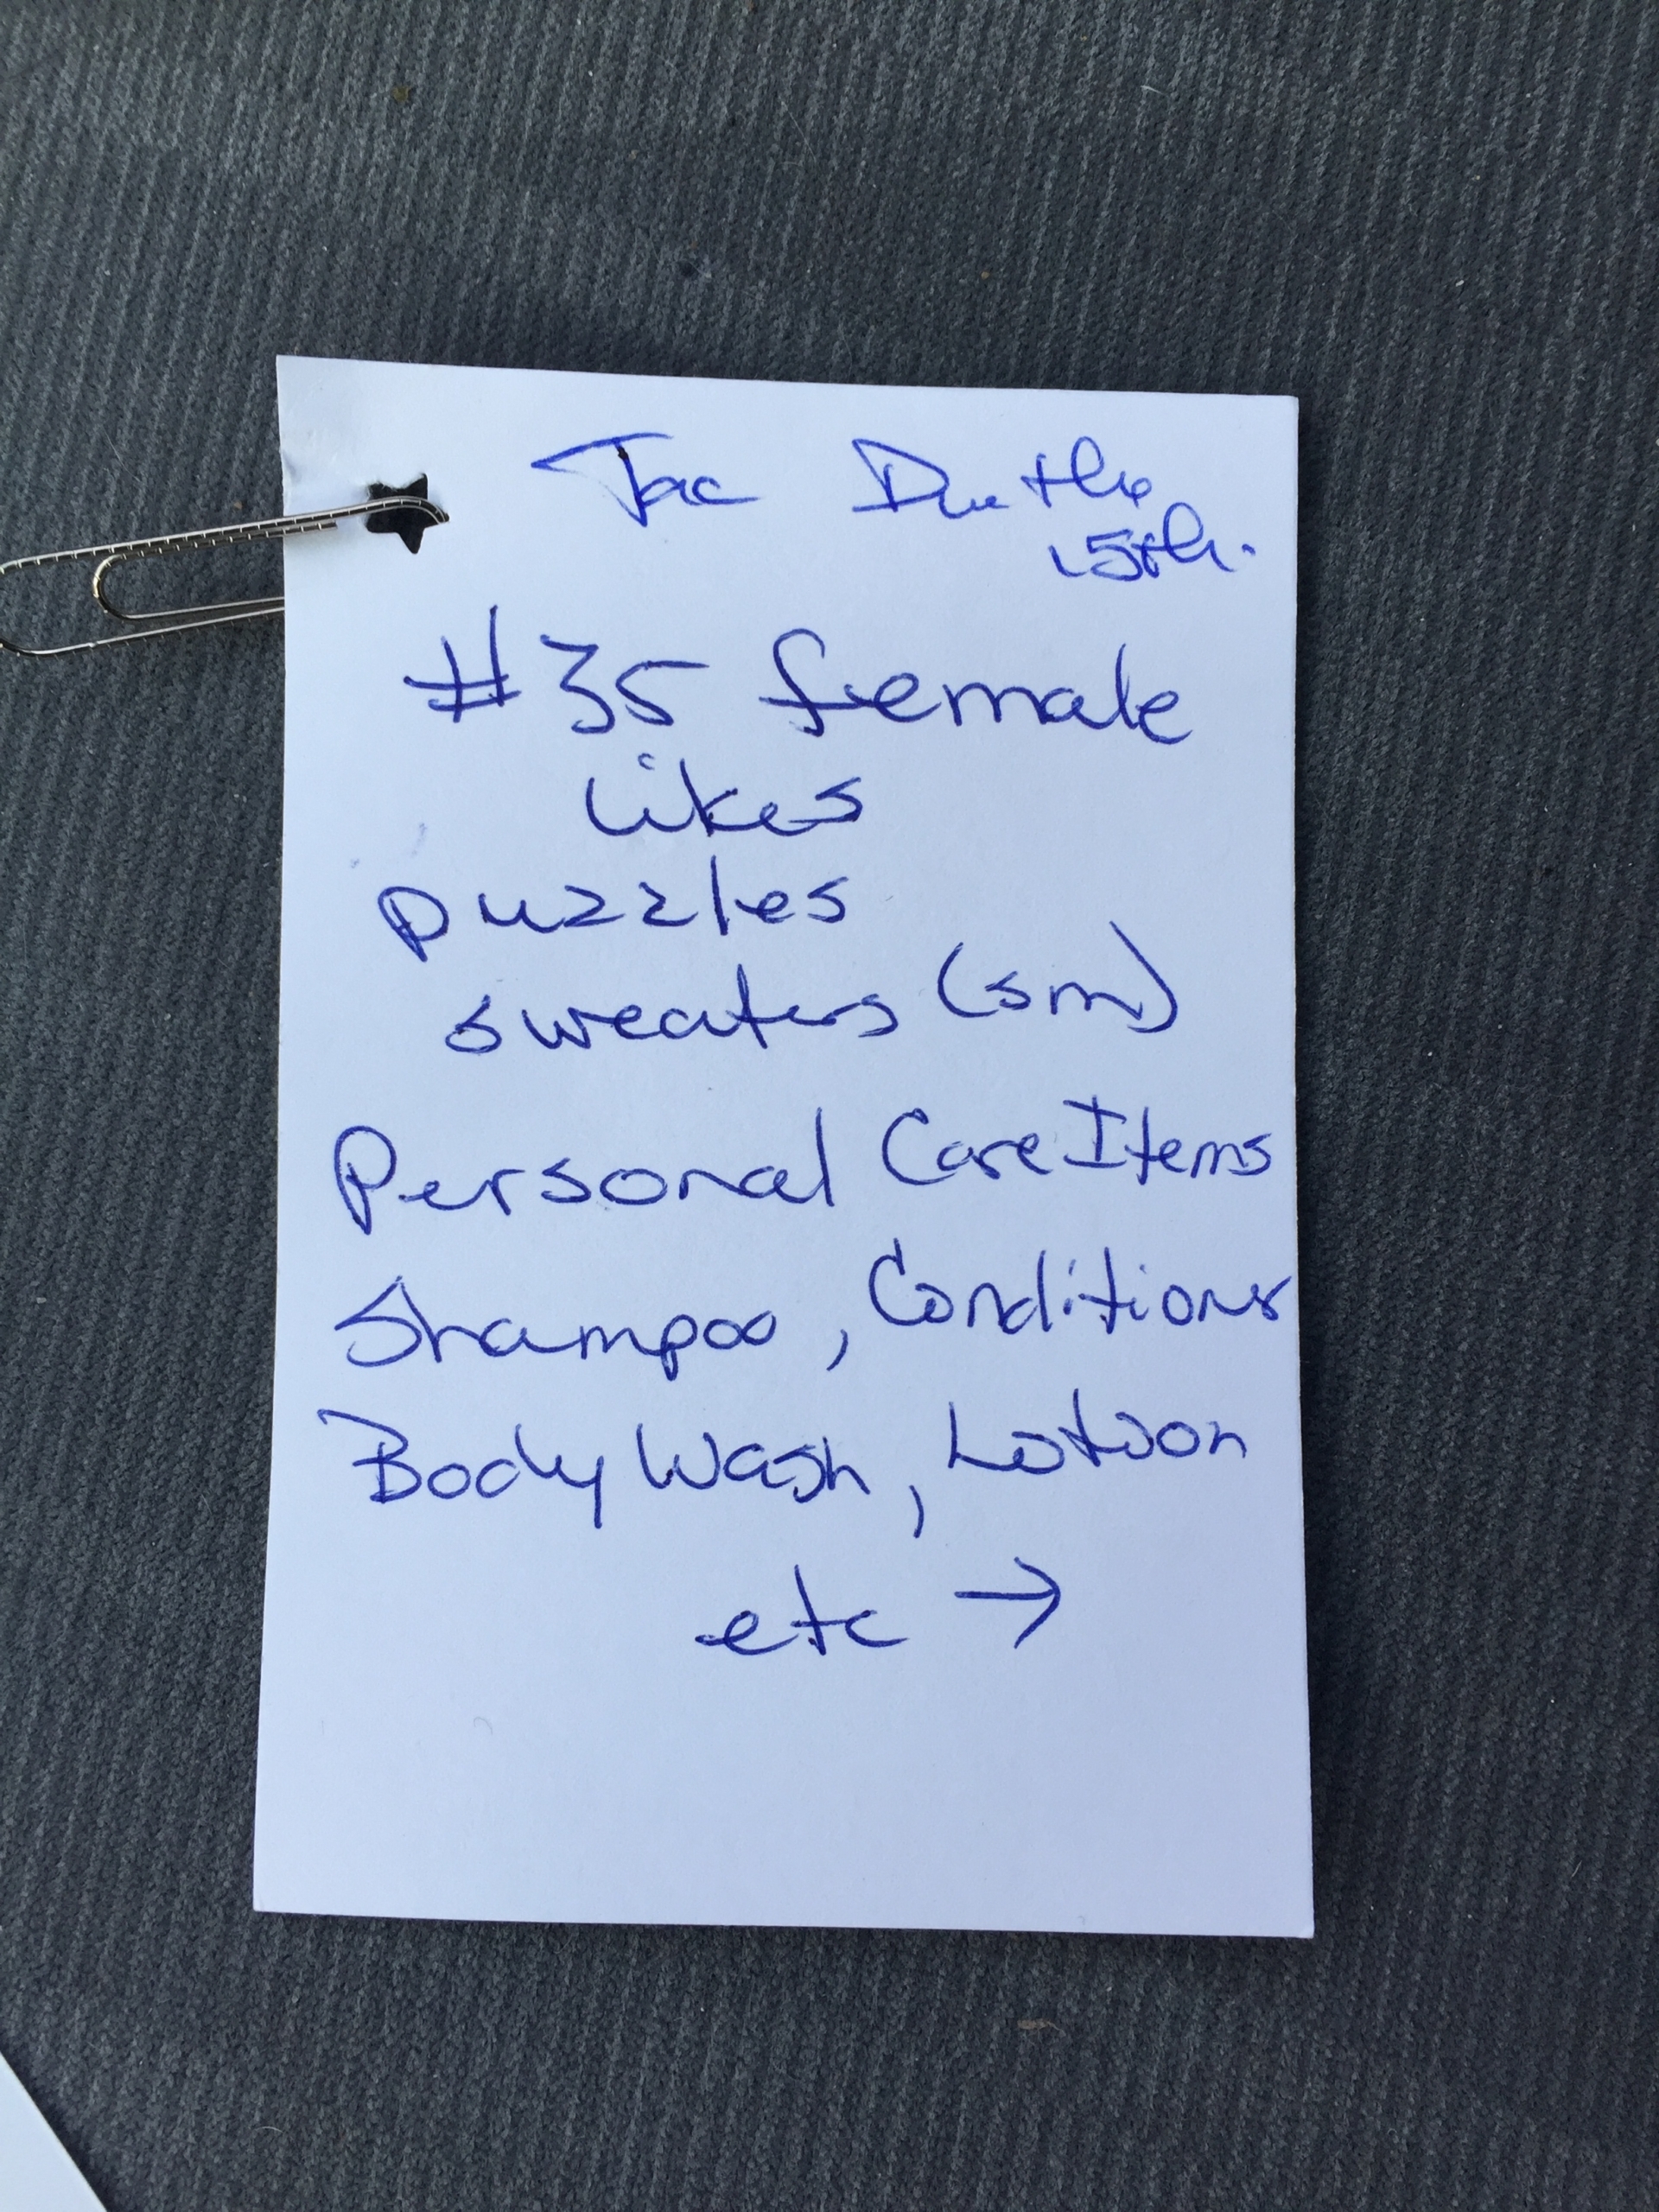 Jac Due the
15th.
#35 female
likes
puzzles
sweaters (sm)
Personal Care Items
Shampoo, Conditioner
Body Wash, Lotion
etc →